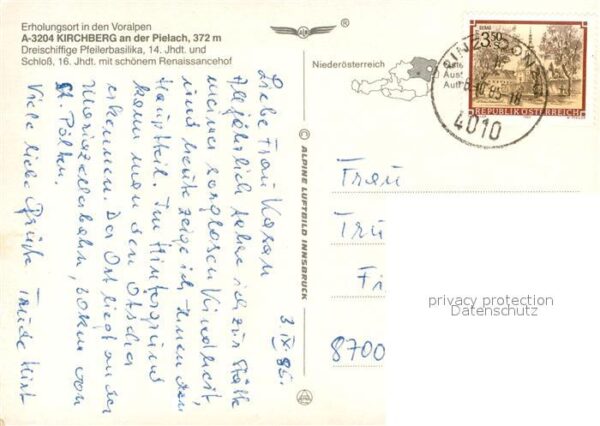 Erholungsort in den Voralpen
A-3204 KIRCHBERG an der Pielach, 372 m
Dreischiffige Pfeilerbasilika, 14. Jhdt. und
Schloß, 16. Jhdt. mit schönem Renaissancehof
®
Niederösterreich
3.50
REPUBLIK ÖSTERREICH
4010
© ALPINE LUFTBILD INNSBRUCK
3. IX. 85.
Liebe Frau
Alljährlich kehre ich zur Stätte
meiner sorglosen Kindheit,
und heute zeige ich Ihnen den
Hauptteil. Im Hintergrund
kann man den Ötscher
erkennen. Der Ort liegt an der
Mariazellerbahn, 30km von
St. Pölten.
Viele liebe Grüße Trude
Frau
Tru
Fi
8700
privacy protection
Datenschutz